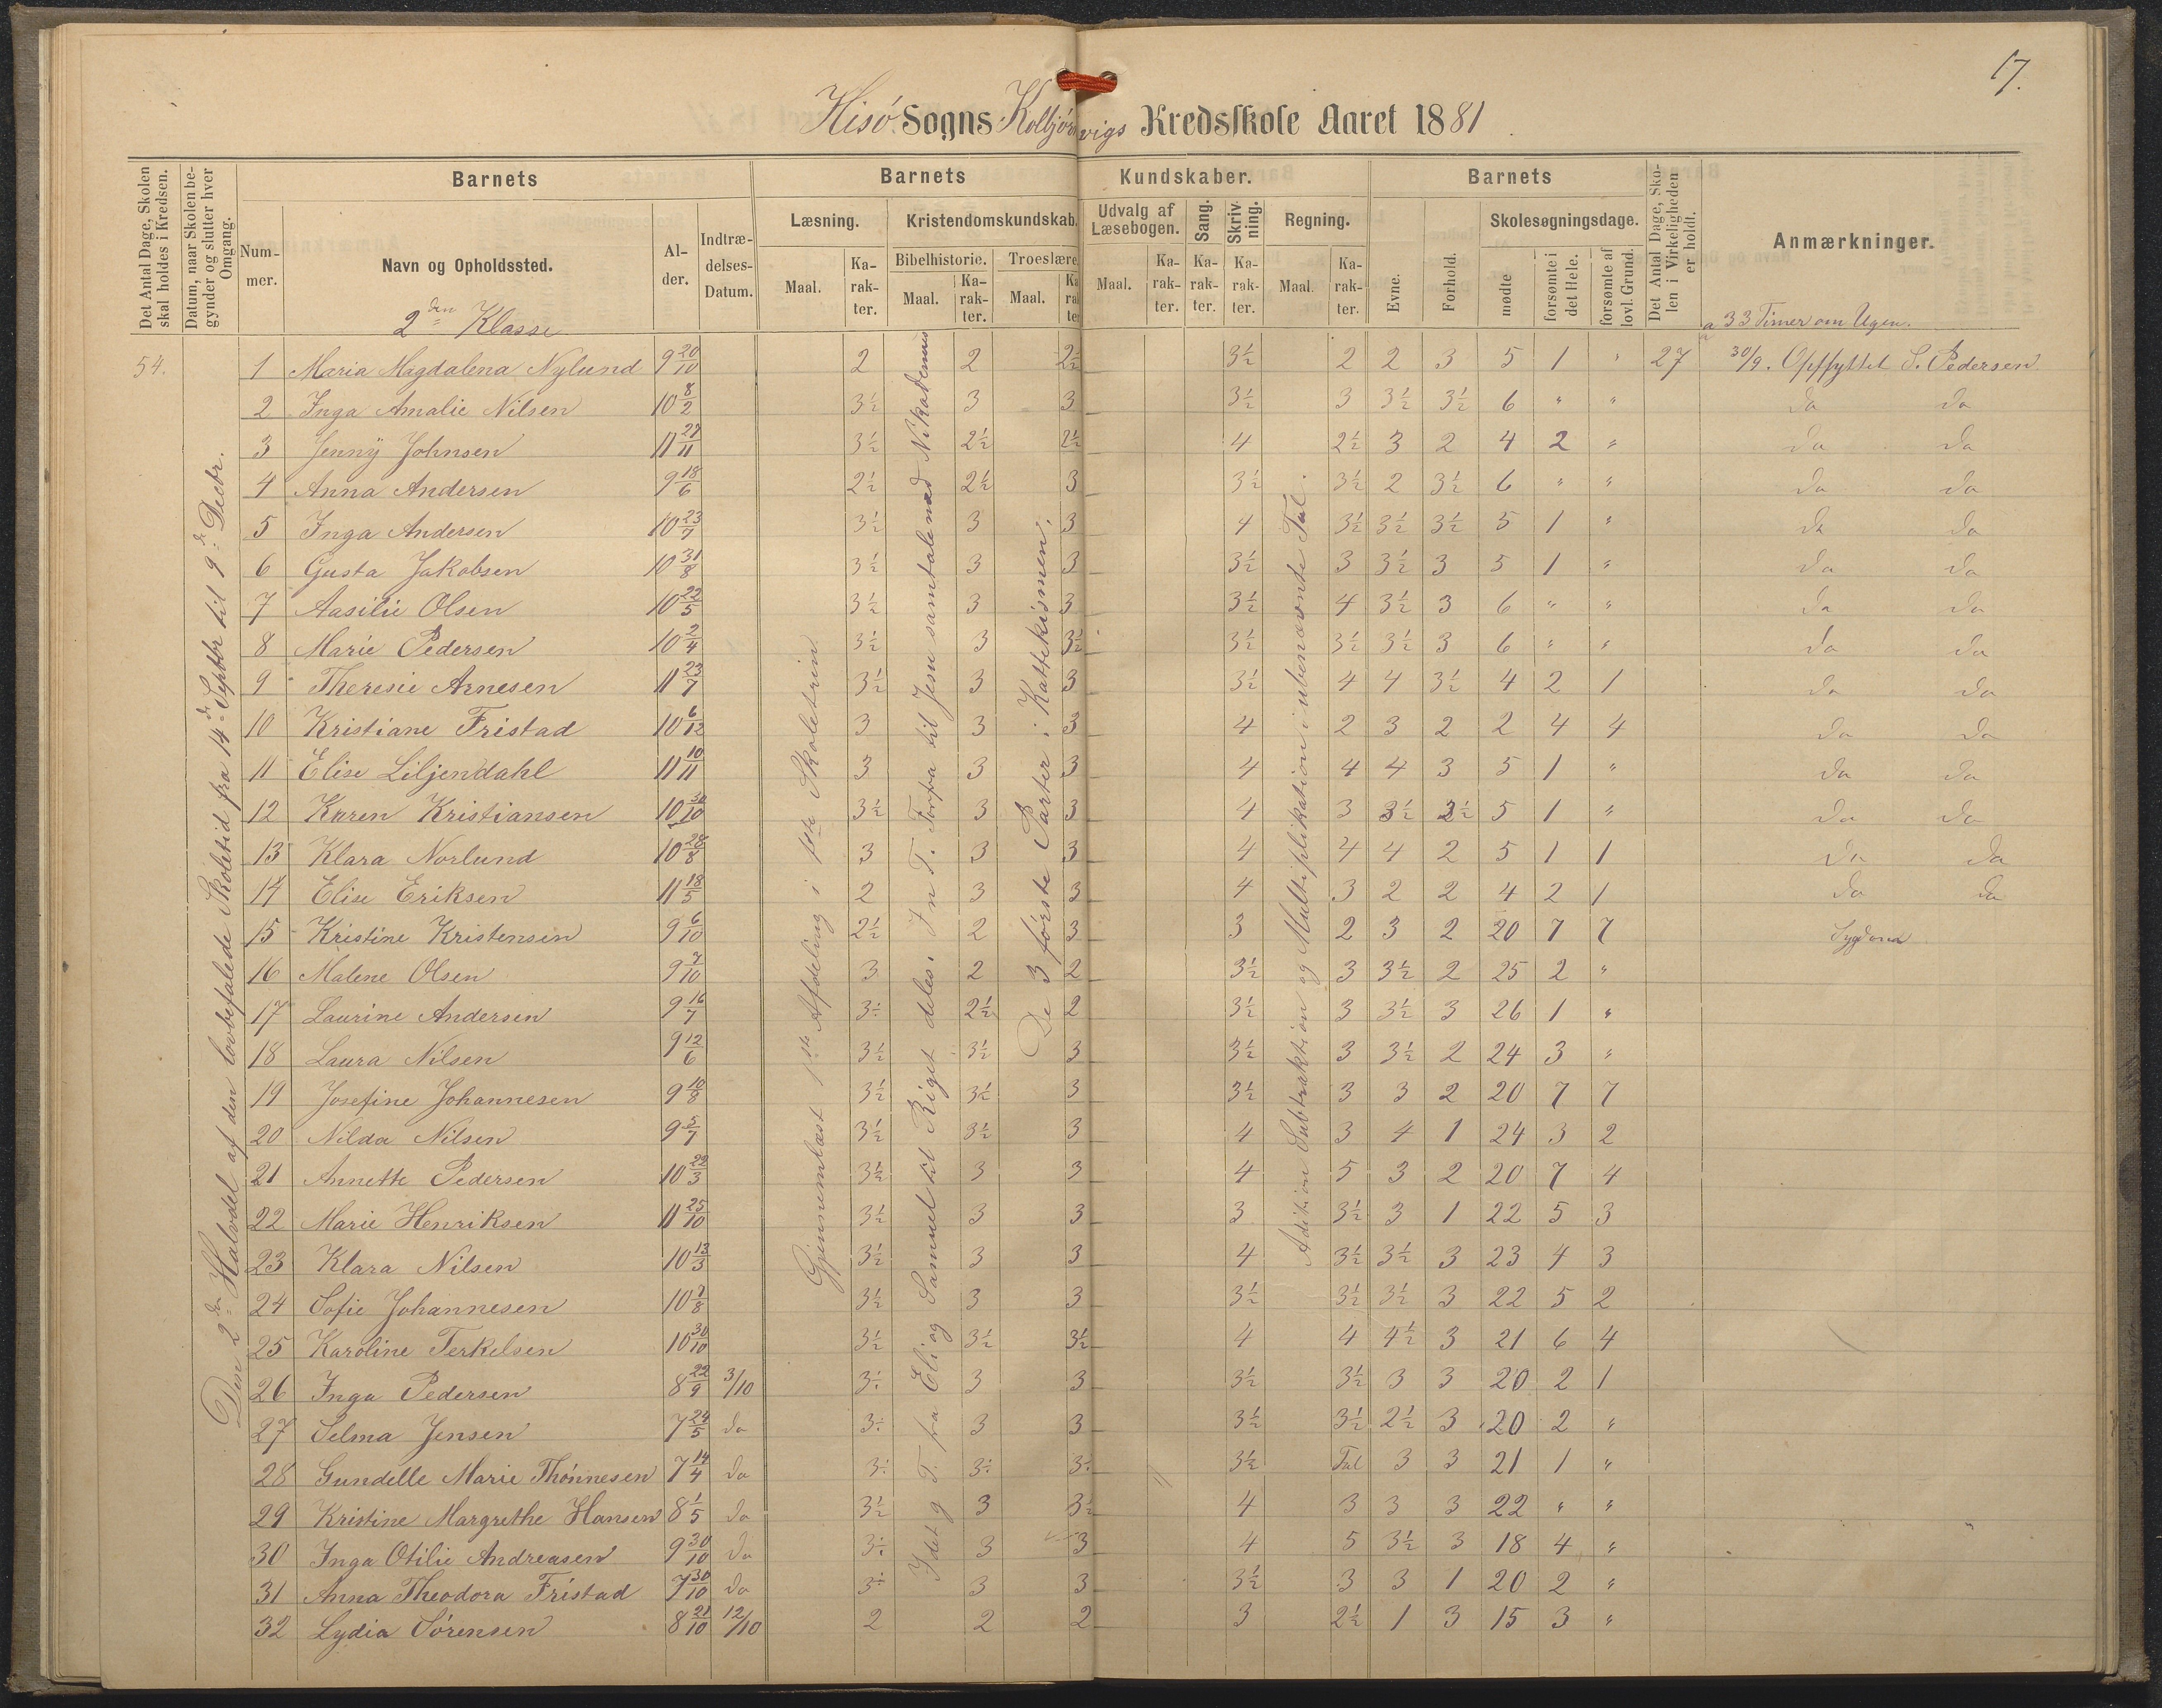 17.
Hisó Sogns Kolbjórnvigs Kredsskole Aaret 1881
Det Antal Dage, Skolen skal holdes i Kredsen.
Datum, naar Skolen begynder og slutter hver Omgang.
Barnets
Barnets Kundskaber.
Barnets
Det Antal Dage, Skolen i Virkeligheden er holdt.
Anmærkninger.
Nummer.
Navn og Opholdssted.
Alder.
Indtrædelses-Datum.
Læsning.
Kristendomskundskab.
Udvalg af Læsebogen.
Sang.
Skrivning.
Regning.
Evne.
Forhold.
Skolesøgningsdage.
Bibelhistorie.
Troeslære
Maal. Karakter. Maal. Karakter. Maal. Maal. Karakter. Karakter. Karakter. Maal. Karakter.
mødte
forsømte i det Hele.
forsømte af lovl. Grund.
2den Klasse
a 33 Timer om Ugen.
Den 2den Halvdel af den lovbefalede Skoletid fra 14de Septbr til 9de Decbr.
Gjennemlæst 1ste Afdeling i 1ste Skoletrin
I det g T. fra Eli og Samuel til Riget deles. I n T. Forfra til Jesu samtale med Nikodemus
De 3 første Parter i Kattekismen.
Adition Subtraktion og Multiplikation i ubenævnte Tal.
54. 1 Maria Magdalena Nylund 9 20/10 2 2 2½ 3½ 2 2 3 5 1 " 27 30/9. Opflyttet S. Pedersen
2 Inga Amalie Nilsen 10 8/2 3½ 3 3 3½ 3 3½ 3½ 6 " " da da
3 Jenny Johnsen 11 27/11 3½ 2½ 2½ 4 2½ 3 2 4 2 " da da
4 Anna Andersen 9 18/6 2½ 2½ 3 3½ 3½ 2 3½ 6 " " da da
5 Inga Andersen 10 23/7 3½ 3 3 4 3½ 3½ 3½ 5 1 " da da
6 Gusta Jakobsen 10 31/8 3½ 3 3 3½ 3 3½ 3 5 1 " da da
7 Aasilie Olsen 10 22/5 3½ 3 3 3½ 4 3½ 3 6 " " da da
8 Marie Pedersen 10 2/4 3½ 3 3½ 3½ 3½ 3½ 3 6 " " da da
9 Theresie Arnesen 11 23/7 3½ 3 3 3½ 4 4 3½ 4 2 1 da da
10 Kristiane Fristad 10 6/12 3 3 3 4 2 3 2 2 4 4 da da
11 Elise Liljendahl 11 10/11 3 3 3 4 4 4 3 5 1 " da da
12 Karen Kristiansen 10 30/10 3½ 3 3 4 3 3½ 2½ 5 1 " da da
13 Klara Norlund 10 28/8 3 3 3 4 4 4 2 5 1 1 da da
14 Elise Eriksen 11 18/5 2 3 3 4 3 2 2 4 2 1 da da
15 Kristine Kristensen 9 6/10 2½ 2 3 3 2 3 2 20 7 7 Sygdom
16 Malene Olsen 9 7/10 3 2 2 3½ 3 3½ 2 25 2 "
17 Laurine Andersen 9 16/7 3÷ 2½ 2 3½ 3 3½ 3 26 1 "
18 Laura Nilsen 9 12/6 3½ 3½ 3 3½ 3 3½ 2 24 3 "
19 Josefine Johannesen 9 10/8 3½ 3½ 3 3½ 3 3 2 20 7 7
20 Nilda Nilsen 9 5/7 3½ 3½ 3 4 3 4 1 24 3 2
21 Annette Pedersen 10 22/3 3½ 3 3 4 5 3 2 20 7 4
22 Marie Henriksen 11 25/10 3½ 3 3 3 3½ 3 1 22 5 3
23 Klara Nilsen 10 13/3 3½ 3 3 4 3½ 3½ 3 23 4 3
24 Sofie Johannesen 10 7/8 3½ 3 3 3½ 3½ 3½ 3 22 5 2
25 Karoline Terkelsen 10 30/10 3½ 3½ 3½ 4 4 4½ 3 21 6 4
26 Inga Pedersen 8 22/9 3/10 3÷ 3 3 3½ 3½ 3 3 20 2 1
27 Selma Jensen 7 24/5 da 3÷ 3 3 3½ 3½ 2½ 3 20 2 "
28 Gundelle Marie Thónnesen 7 14/4 da 3÷ 3÷ 3÷ 3½ Tal 3 3 21 1 "
29 Kristine Margrethe Hansen 8 1/5 da 3½ 3 3½ 4 3 3 3 22 " "
30 Inga Otilie Andreasen 9 30/10 da 3÷ 3 3 4 5 3½ 3 18 4 "
31 Anna Theodora Fristad 7 30/10 da 3÷ 3 3 3½ 3 3 1 20 2 "
32 Lydia Sórensen 8 21/10 12/10 2 2 2 3 2½ 1 3 15 3 "